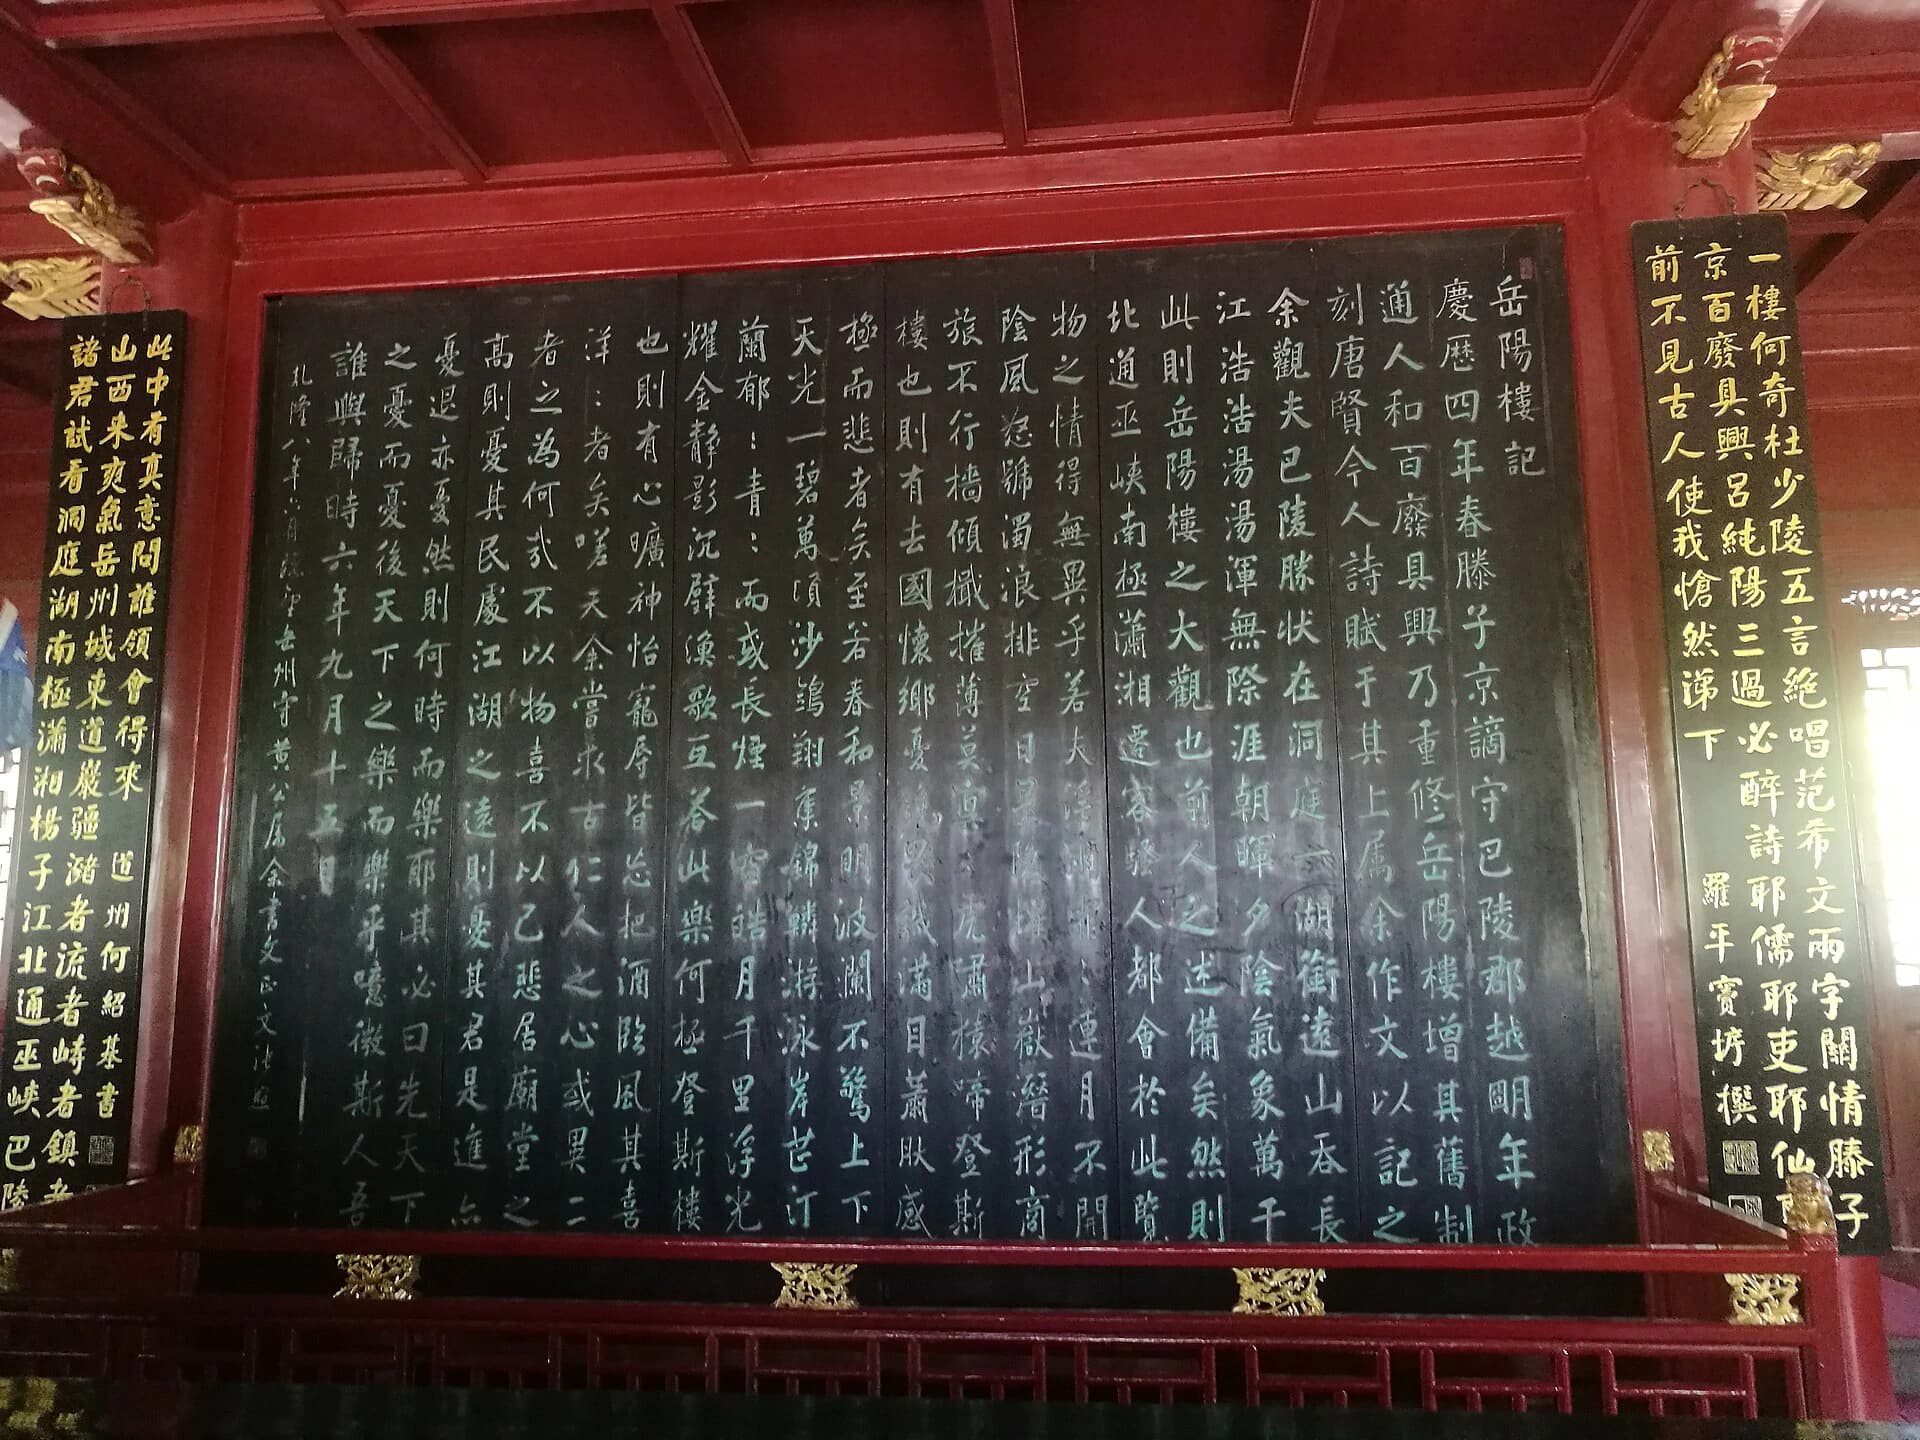 一樓何奇杜少陵五言絕唱范希文兩字關情滕子
京百廢具興呂純陽三過必醉詩耶儒耶吏耶仙耶
前不見古人使我愴然涕下 羅平竇垿撰
岳陽樓記
慶歷四年春滕子京謫守巴陵郡越明年政
通人和百廢具興乃重修岳陽樓增其舊制
刻唐賢今人詩賦于其上属余作文以記之
余觀夫巴陵勝狀在洞庭一湖銜遠山吞長
江浩浩湯湯渾無際涯朝暉夕陰氣象萬千
此則岳陽樓之大觀也前人之述備矣然則
北通巫峽南極瀟湘遷客騷人都會於此覽
物之情得無異乎若夫淫雨霏：連月不開
陰風怒號濁浪排空日星隱耀山嶽潛形商
旅不行檣傾檝摧薄莫冥：虎嘯猿啼登斯
樓也則有去國懷鄉憂讒畏譏滿目蕭肰感
極而悲者矣至若春和景明波瀾不驚上下
天光一碧萬頃沙鷗翔集錦鱗游泳岸芷汀
蘭郁：青：而或長煙一空皓月千里浮光
耀金静影沉璧漁歌互荅此樂何極登斯樓
也則有心曠神怡寵辱皆忘把酒臨風其喜
洋：者矣嗟夫余嘗求古仁人之心或異二
者之為何哉不以物喜不以己悲居廟堂之
高則憂其民處江湖之遠則憂其君是進亦
憂退亦憂然則何時而樂耶其必曰先天下
之憂而憂後天下之樂而樂乎噫微斯人吾
誰與歸時六年九月十五日
乾隆八年六月 岳州守黄公属余書文正文張照
諸君試看洞庭湖南極瀟湘楊子江北通巫峽巴陵
山西来爽氣岳州城東道巖疆瀦者流者峙者鎮者
此中有真意問誰領會得來 道州何紹基書